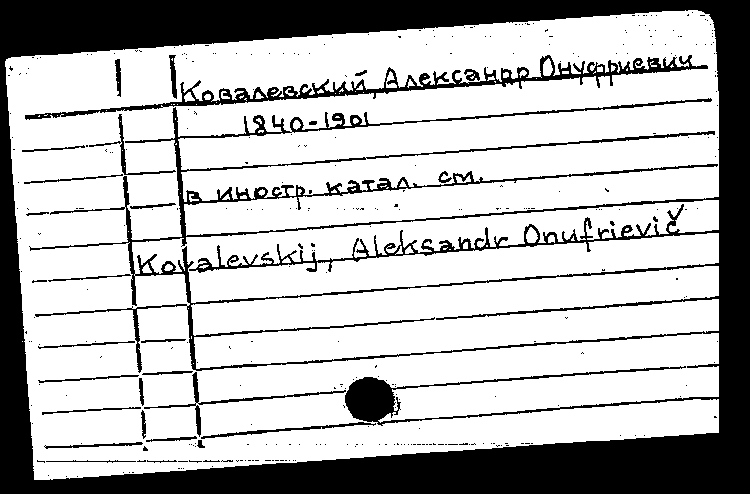 Ковалевский, Александр Онуфриевич
1840-1901
в иностр. катал. см.
Kovalevskij, Aleksandr Onufrievič